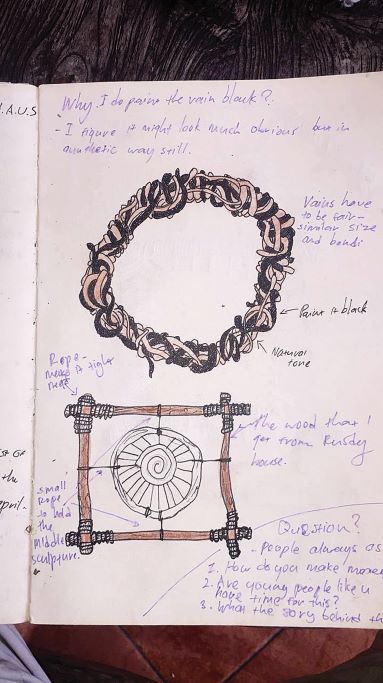 H.A.U.S
Why I do paint the vain black?
- I figure it might look much obvious but in
authetic way still.
Vains have
to be fair-
similar size
and bendi
Paint it black
Natural
tone
Rope-
make it tight
The wood that I
get from Rusdy
house.
small
Rope
to hold
the
Middle
sculpture.
the
April.
Question?
- People always as
1. How do you make money
2. Are young people like u
have time for this?
3. What the story behind th